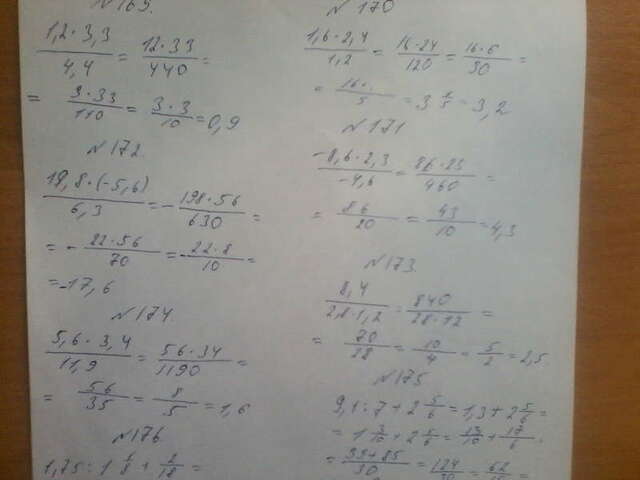 №169.
1,2·3,3/4,4 = 12·33/440 =
= 3·33/110 = 3·3/10 = 0,9
№172.
19,8·(-5,6)/6,3 = -198·56/630 =
= -22·56/70 = -22·8/10 =
= -17,6
№174.
5,6·3,4/11,9 = 56·34/1190 =
= 56/35 = 8/5 = 1,6
№176
1,75:1 1/8 + 2/18 =
№170
1,6·2,4/1,2 = 16·24/120 = 16·6/30 =
= 16·/5 = 3 1/5 = 3,2
№171
-8,6·2,3/-4,6 = 86·23/460 =
= 86/20 = 43/10 = 4,3
№173.
8,4/2,8·1,2 = 840/28·12 =
= 70/28 = 10/4 = 5/2 = 2,5.
№175
9,1:7+2 5/6 = 1,3+2 5/6 =
= 1 3/10 + 2 5/6 = 13/10 + 17/6
= 39+85/30 = 124/30 = 62/15 =